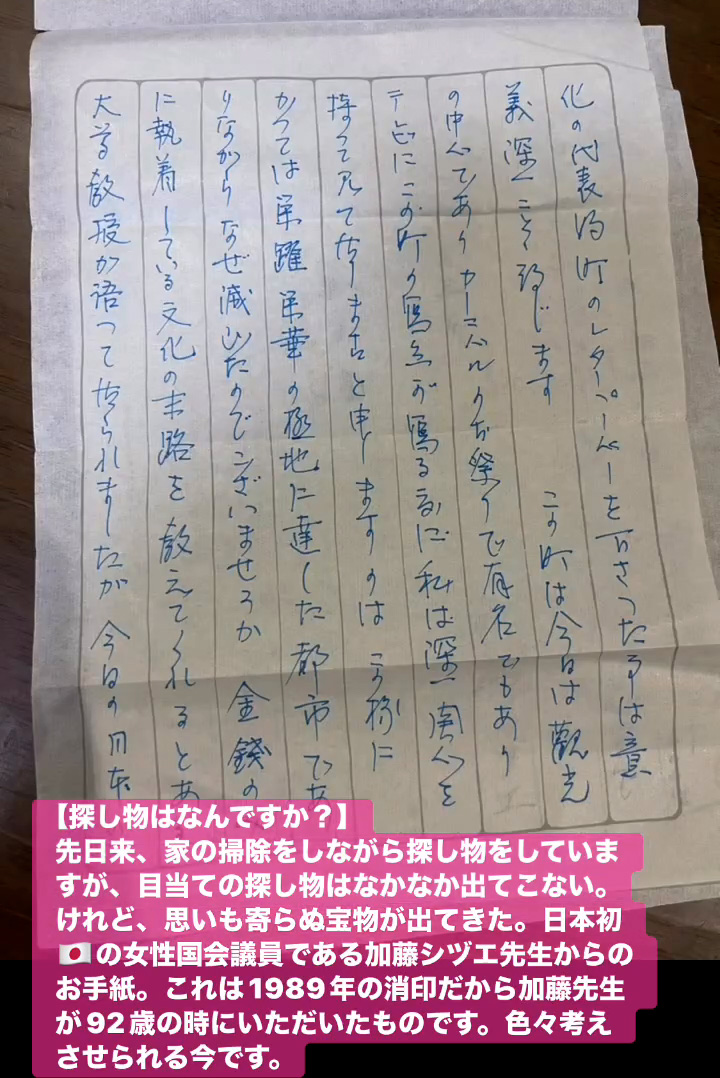 化の代表的町のレターペーパーを下さつた事は意
義深いこそ存じます　この町は今日は觀光
の中心でありカーニバルのお祭りで有名でもあり
テレビにこの町の寫真が寫る度に私は深い関心を
持つて見て居りますと申しますのは この様に
かつては栄躍 栄華の極地に達した都市であ
りながらなぜ滅びたのでございませうか 金錢の
に執着している文化の末路を教えてくれるとあ
大学教授が語つて居られましたが 今日の日本
【探し物はなんですか？】
先日来、家の掃除をしながら探し物をしていま
すが、目当ての探し物はなかなか出てこない。
けれど、思いも寄らぬ宝物が出てきた。日本初
🇯🇵の女性国会議員である加藤シヅエ先生からの
お手紙。これは1989年の消印だから加藤先生
が92歳の時にいただいたものです。色々考え
させられる今です。